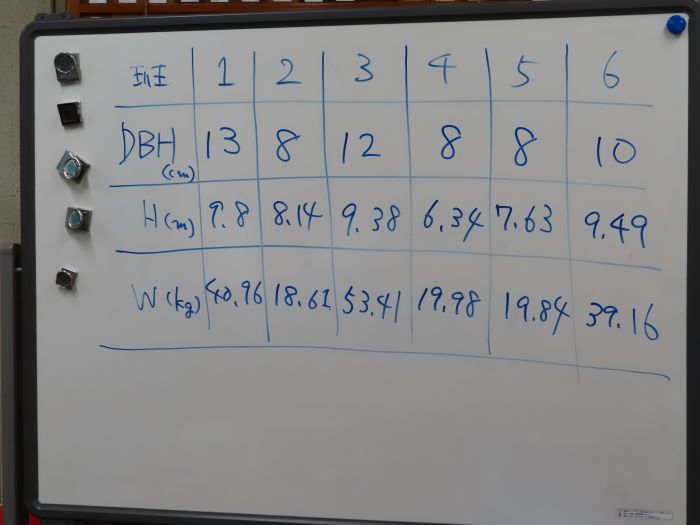 班 1 2 3 4 5 6
DBH (cm) 13 8 12 8 8 10
H(m) 9.8 8.14 9.38 6.34 7.63 9.49
W(kg) 40.96 18.61 53.41 19.98 19.84 39.16